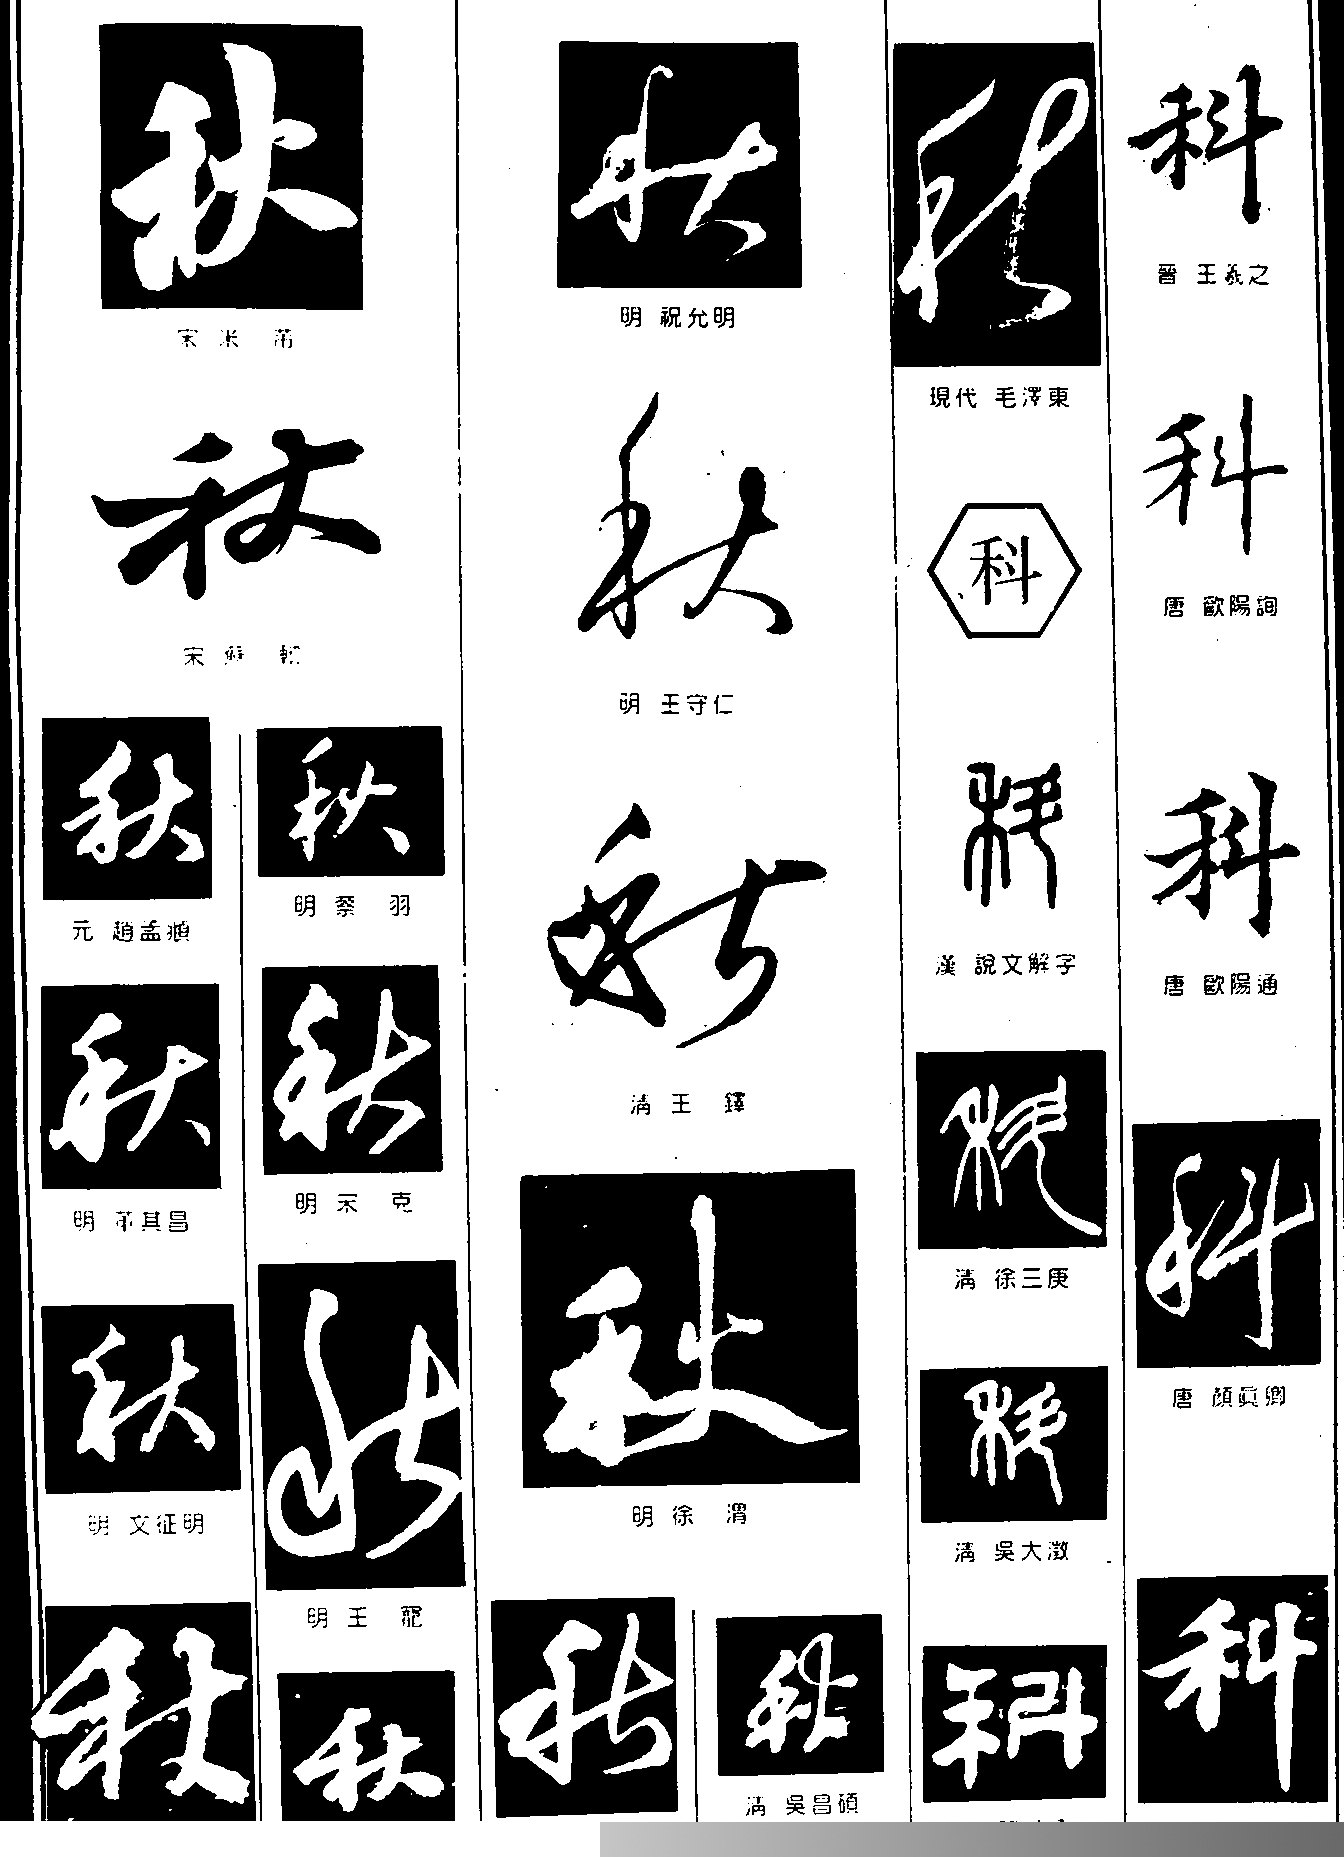 秋
宋 米 芾
秋
宋 蘇 軾
秋
元 趙孟頫
秋
明 董其昌
秋
明 文征明
秋
秋
明 蔡 羽
秋
明 宋 克
秋
明 王 寵
秋
秋
明 祝允明
秋
明 王守仁
秋
清 王 鐸
秋
明 徐 渭
秋
秋
清 吳昌碩
秋
現代 毛澤東
科
科
漢 說文解字
科
清 徐三庚
科
清 吳大澂
科
科
晉 王羲之
科
唐 歐陽詢
科
唐 歐陽通
科
唐 顏真卿
科